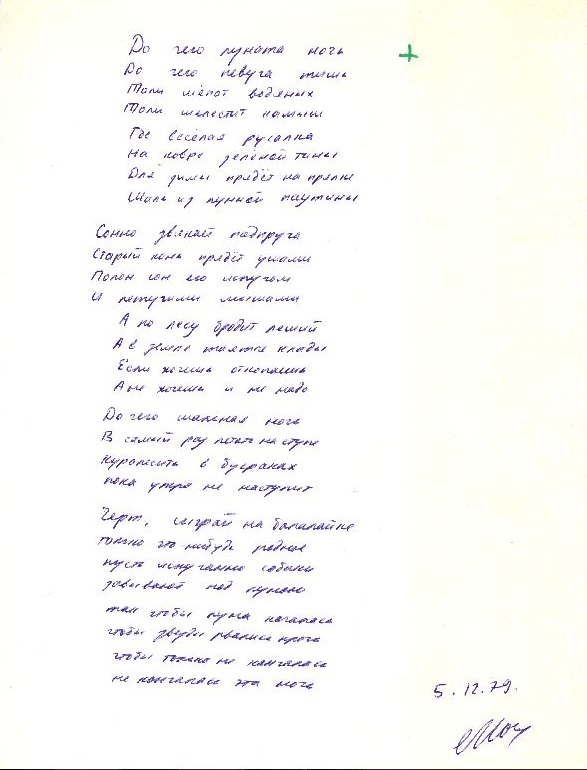 До чего луната ночь
До чего певуча тишь
То ли шёпот водяных
То ли шелестит камыш
Где весёлая русалка
На ковре зелёной тины
Для зимы прядёт на прялке
Шаль из лунной паутины
Сонно звякнет подпруга
Старый конь прядёт ушами
Полон сон его испугом
И летучими мышами
А по лесу бродит леший
А в земле таятся клады
Если хочешь откопаешь
А не хочешь и не надо
До чего шальная ночь
В самый раз летать на ступе
Куролесить в буераках
пока утро не наступит
Чёрт, сыграй на балалайке
только что-нибудь родное
пусть испуганно собаки
завывают под луною
так чтобы луна качалась
чтобы звёзды рвались прочь
чтобы только не кончалась
не кончалась эта ночь
5.12.79.